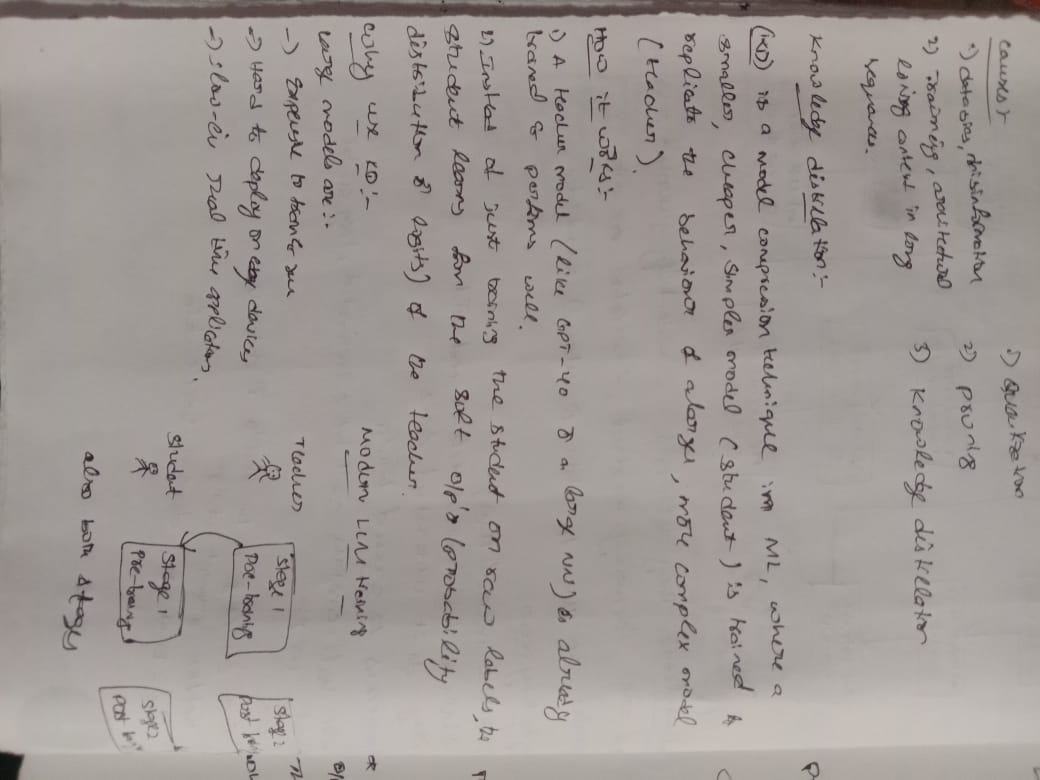 causes :-
1) data bias, misinformation
2) Training, architectural
losing context in long
sequences.
1) Quantization
2) pruning
3) Knowledge distillation
Knowledge distillation:-
(KD) is a model compression technique in ML, where a
smaller, cheaper, simpler model (student) is trained to
replicate the behaviour of a larger, more complex model
(teacher).
How it works:-
1) A teacher model (like GPT-4o or a large NN) is already
trained & performs well.
2) Instead of just training the student on raw labels, the
student learns from the soft o/p's (probability
distribution or logits) of the teacher.
Why use KD:-
large models are:-
-> Expensive to train & run
-> Hard to deploy on edge devices
-> slow in real time applications.
Modern LLM training
Teacher
Stage 1
Pre-training
Stage 2
post
Student
Stage 1
pre-training
Stage 2
post
also both stages